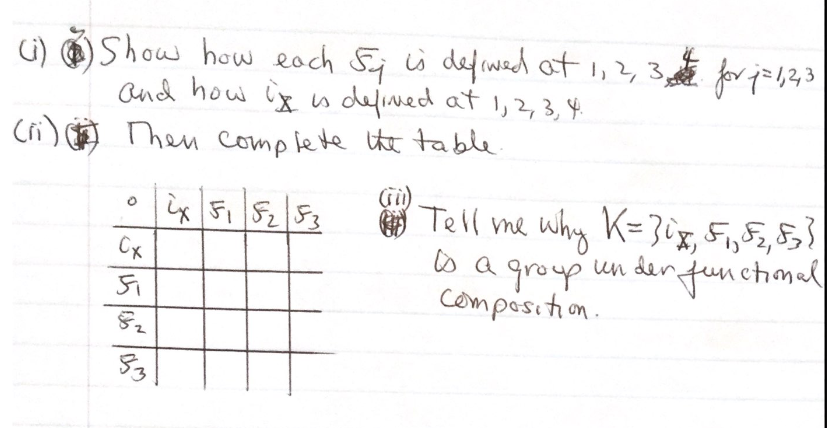 (i) Show how each σj is defined at 1, 2, 3, 4 for j=1,2,3
and how iX is defined at 1, 2, 3, 4.
(ii) Then complete the table.
∘ iX σ1 σ2 σ3
iX
σ1
σ2
σ3
(iii) Tell me why K={iX, σ1, σ2, σ3}
is a group under functional
composition.